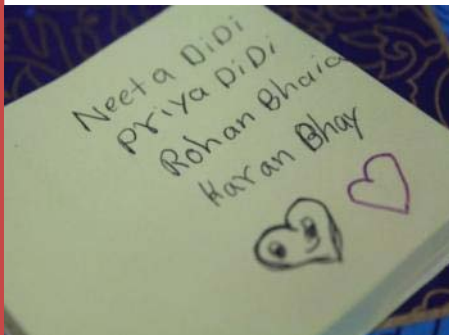 Neeta DiDi
Priya DiDi
Rohan Bhaia
Karan Bhay